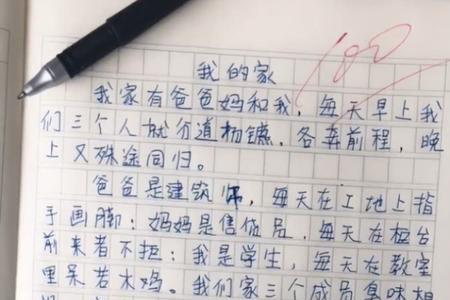 100
我的家
我家有爸爸妈和我，每天早上我
们三个人就分道扬镳，各奔前程，晚
上又殊途同归。
爸爸是建筑师，每天在工地上指
手画脚；妈妈是售货员，每天在柜台
前来者不拒；我是学生，每天在教室
里呆若木鸡。我们家三个成员臭味相